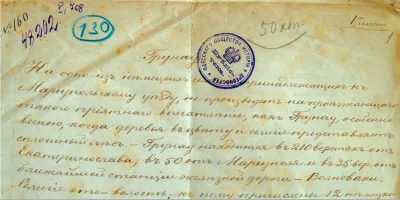 №160
I, 708
48202
130
50 коп.
1
Грунау
ОДЕССКАГО ОБЩЕСТВА ИСТОРІИ И ДРЕВНОСТЕЙ
Ни одно изъ нѣмецкихъ принадлежащихъ къ
Маріупольскому уѣзду, не производитъ на проѣзжающаго
такого пріятнаго впечатлѣнія, какъ Грунау, особенно
весною, когда деревья въ цвѣту и селеніе представляетъ
сплошный лѣсъ. – Грунау находится въ 210 верстахъ отъ
Екатеринослава, въ 50 отъ Маріуполя и въ 35 вер. отъ
ближайшей станціи желѣзной дороги – Волноваха.
Селеніе это – волость, къ нему приписаны 12